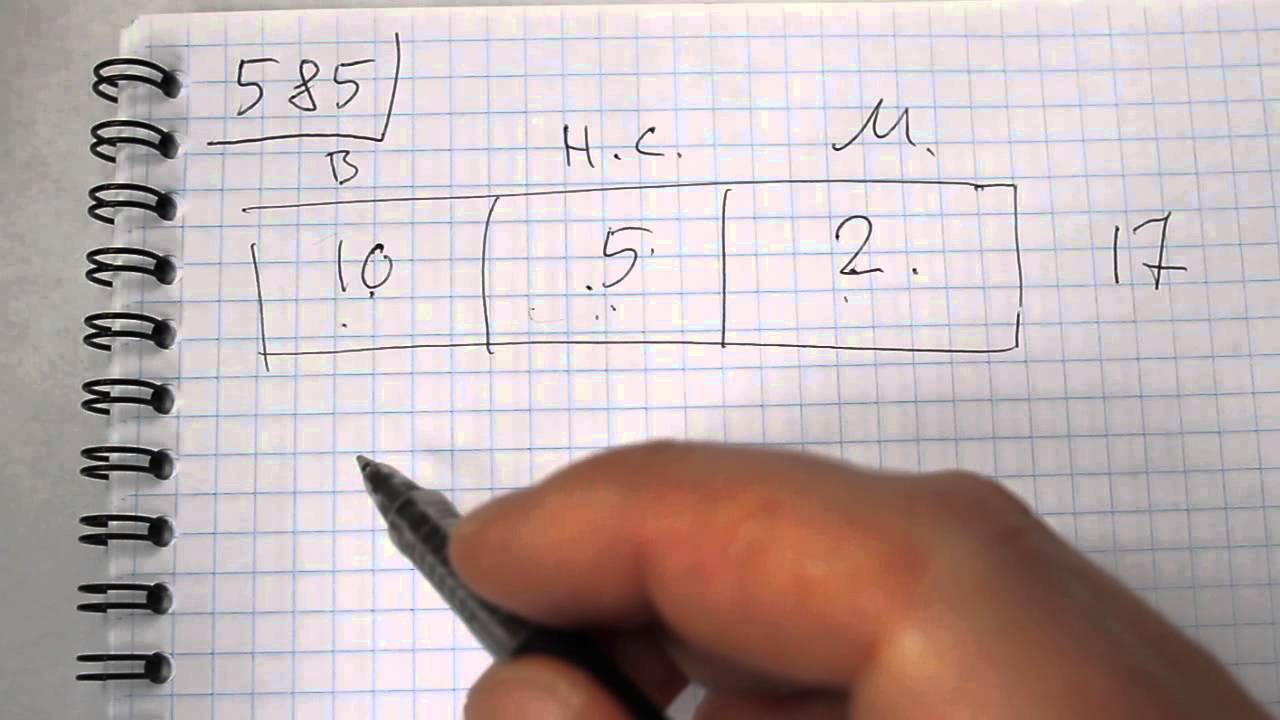 585
В Н.С. М.
10 5 2. 17